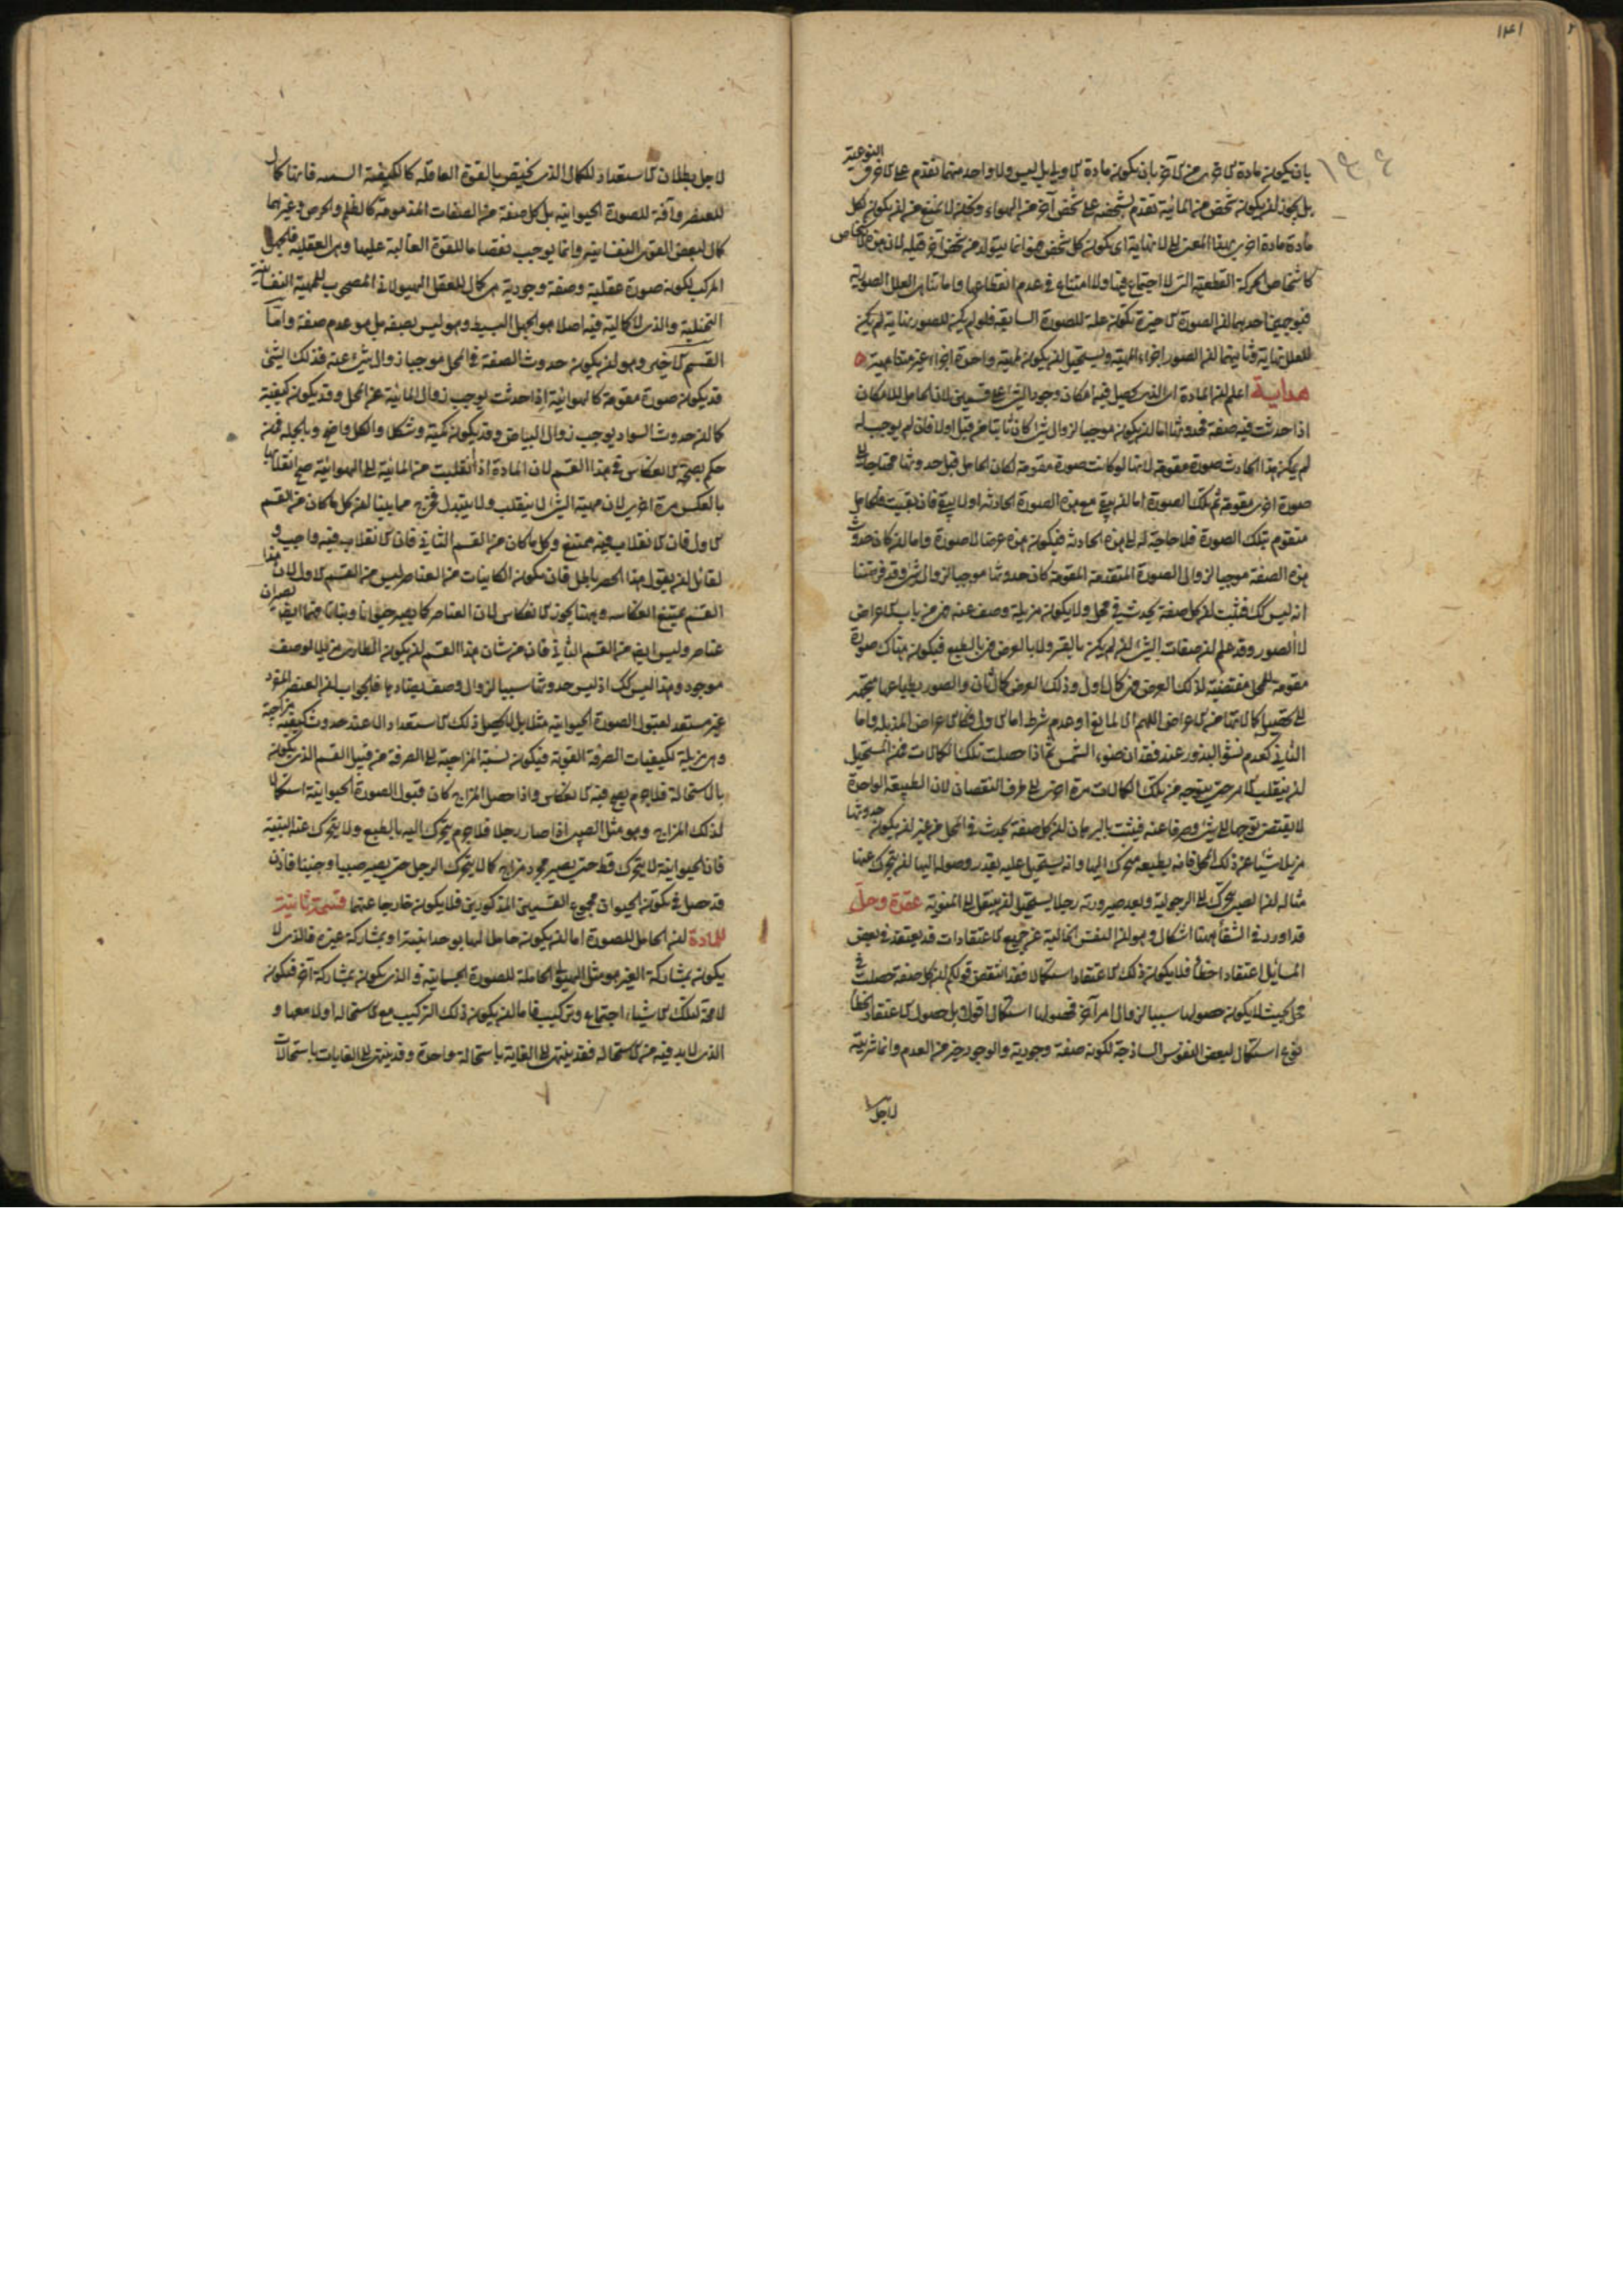 ١٤١
النوعية
بان يكون مادة الاخرى من الآخر بان يكون مادة الاولى بل ليس ولا واحد منهما تقدم على الاخرى
بل يجوز ان يكون شخص من المائية تقدم بشخصه على شخص آخر من الهواء ونحن لا نمنع من ان يكون لكل
مادة مادة اخرى بهذا المعنى الى لا نهاية اى يكون كل شخص هو انما يتولد من شخص آخر قبله لان هذه الاشخاص
كاشخاص الحركة القطعية التى لا اجتماع فيها ولا امتناع فى عدم انقطاعها واما تناهى العلل الصورية
فبوجهين احدهما ان الصورة الاخيرة تكون علة للصورة السابقة فلو لم يكن للصور نهاية لم يكن
للعلل نهاية وثانيهما ان الصور اجزاء المهية ويستحيل ان يكون لمهية واحدة اجزاء غير متناهية
هداية اعلم ان المادة اى الذى يحصل فيه امكان وجود الشئ على قسمين لان الحامل للامكان
اذا حدثت فيه صفة فحدوثها اما ان يكون موجبا لزوال شئ كان ثابتا من قبل اولا فان لم يوجب له
لم يكن هذا الحادث صورة مقومة لانها لو كانت صورة مقومة لكان الحامل قبل حدوثها محتاجا الى
صورة اخرى مقومة ثم تلك الصورة اما ان يبقى مع هذه الصورة الحادثة اولا يبقى فان بقيت فالحامل
متقوم بتلك الصورة فلا حاجة له الى هذه الحادثة فيكون هذه عرضا لا صورة واما ان كان حدوث
هذه الصفة موجبا لزوال الصورة المتقدمة المقومة كان حدوثها موجبا لزوال شئ وقد فرضنا
انه ليس كك فثبت ان كل صفة يحدث فى محل ولا يكون مزيلة وصف عنه فهى من باب الاعراض
لا الصور وقد علم ان صفات الشئ ان لم يكن بالقسر ولا بالعرض فهى بالطبع فيكون هناك صورة
مقومة للمحل مقتضية لذلك العرض فهى كمال اول وذلك العرض كمال ثان والصور بطباعها متجهة
الى تحصيل كمالاتها من الاعراض اللهم الا لمانع او عدم شرط اما الاول فكالاعراض المزيلة واما
الثانى كعدم نشو البذور عند فقدان ضوء الشمس ثم اذا حصلت تلك الكمالات فمن المستحيل
ان ينقلب الامر حتى يتوجه من تلك الكمالات مرة اخرى الى طرف النقصان لان الطبيعة الواحدة
لا يقتضى توجها الى شئ وصرفا عنه فيثبت بالبرهان ان كل صفة يحدث فى المحل من غير ان يكون حدوثها
مزيلا شيئا عن ذلك المحل فانه بطبيعه متحرك اليها وانه يستحيل عليه بعد وصوله اليها ان يتحرك عنها
مثاله ان الصبى يتحرك الى الرجولية وبعد صيرورته رجلا يستحيل ان ينتقل الى المنوية عقدة وحل
قد اورد فى الشفا ههنا اشكال وهو ان النفس الخالية عن جميع الاعتقادات قد يعتقد فى بعض
المسائل اعتقادا خطأ فلا يكون ذلك الاعتقاد استكمالا فقد انتقض قولكم ان كل صفة حصلت فى
محل بحيث لا يكون حصولها سببا لزوال امر آخر فحصولها استكمال اقول بل حصول الاعتقاد الخطأ
نوع استكمال لبعض النفوس الساذجة لكونه صفة وجودية والوجود خير من العدم وانما شريته
لاجل
لاجل بطلان الاستعداد للكمال الذى يختص بالقوة العاقلة كالكيفية فانها كمال
للعنصر وآفة للصورة الحيوانية بل كل صفة من الصفات المذمومة كالظلم والحرص وغيرهما
كمال لبعض القوى النفسانية وانما يوجب نقصا ما للقوة العالية عليها وهى العقلية فالجهل
المركب لكونه صورة عقلية وصفة وجودية هى كمال للعقل الهيولانى المصحوب للهيئة النفسانية
التخيلية والذى لا كمالية فيه اصلا هو الجهل البسيط وهو ليس بصفة بل هو عدم صفة واما
القسم الاخير وهو ان يكون حدوث الصفة فى المحل موجبا زوال شئ عنه فذلك الشئ
قد يكون صورة مقومة كالهوائية اذا حدثت يوجب زوال المائية عن المحل وقد يكون كيفية
كما ان حدوث السواد يوجب زوال البياض وقد يكون كمية وشكل والكل واضح وبالجملة فمن
حكم بصحة الانعكاس فى هذا القسم لان المادة اذا انقلبت من المائية الى الهوائية صح انقلابها
بالعكس مرة اخرى لان مهية الشئ لا ينقلب ولا يتبدل فخرج مما بينا ان كل ما كان من القسم
الاول فان الانقلاب فيه ممتنع وكل ما كان من القسم الثانى فان الانقلاب فيه واجب و
لقائل ان يقول هذا الحصر باطل فان تكون الكاينات من العناصر ليس من القسم الاول لان هذا
القسم يمتنع انعكاسه وههنا يجوز الانعكاس لان العناصر كما يصير حيوانا ونباتا فهما ايضا يصيران
عناصر وليس ايض من القسم الثانى فان من شان هذا القسم ان يكون الطارى مزيلا لوصف
موجود وهذا ليس كك اذ ليس حدوثها سببا لزوال وصف يضادها فالجواب ان العنصر المفرد
غير مستعد لقبول الصورة الحيوانية مثلا بل لا يحصل ذلك الاستعداد الا عند حدوث كيفية مزاجية
وهى مزيلة لكيفيات الصرفة القوية فيكون نسبة المزاجية الى الصرفة من قبيل القسم الذى يكون
بالاستحالة فلا جرم يصح فيه الانعكاس واذا حصل المزاج كان قبول الصورة الحيوانية استكمالا
لذلك المزاج وهو مثل الصبى اذا صار رجلا فلا جرم يتحرك اليه بالطبع ولا يتحرك عنه البتة
فان الحيوانية لا يتحرك قط حتى يصير مجرد مزاج كما لا يتحرك الرجل حتى يصير صبيا وجنينا فاذن
قد حصل فى تكون الحيوان مجموع القسمين المذكورين فلا يكون خارجا عنهما قسمة ثانية
للمادة ان الحامل للصورة اما ان يكون حاملا لها بوحدانيتها او بمشاركة غيره فالذى لا
يكون بمشاركة الغير هو مثل الهيولى الحاملة للصورة الجسمانية والذى يكون بمشاركة آخر فيكون
لا محة لتلك الاشياء اجتماع وتركيب فاما ان يكون ذلك التركيب مع الاستحالة اولا معها و
الذى لا بد فيه من الاستحالة فقد ينتهى الى الغاية باستحالة واحدة وقد ينتهى الى الغايات باستحالات